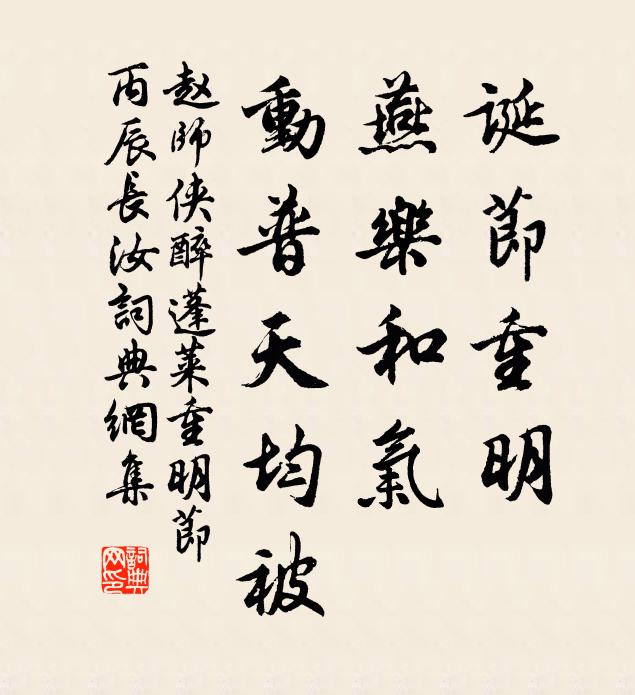 誕節重明
燕樂和氣
動普天均被
赵師俠醉蓬萊重明節
丙辰長汝詞典網集
詞典网印